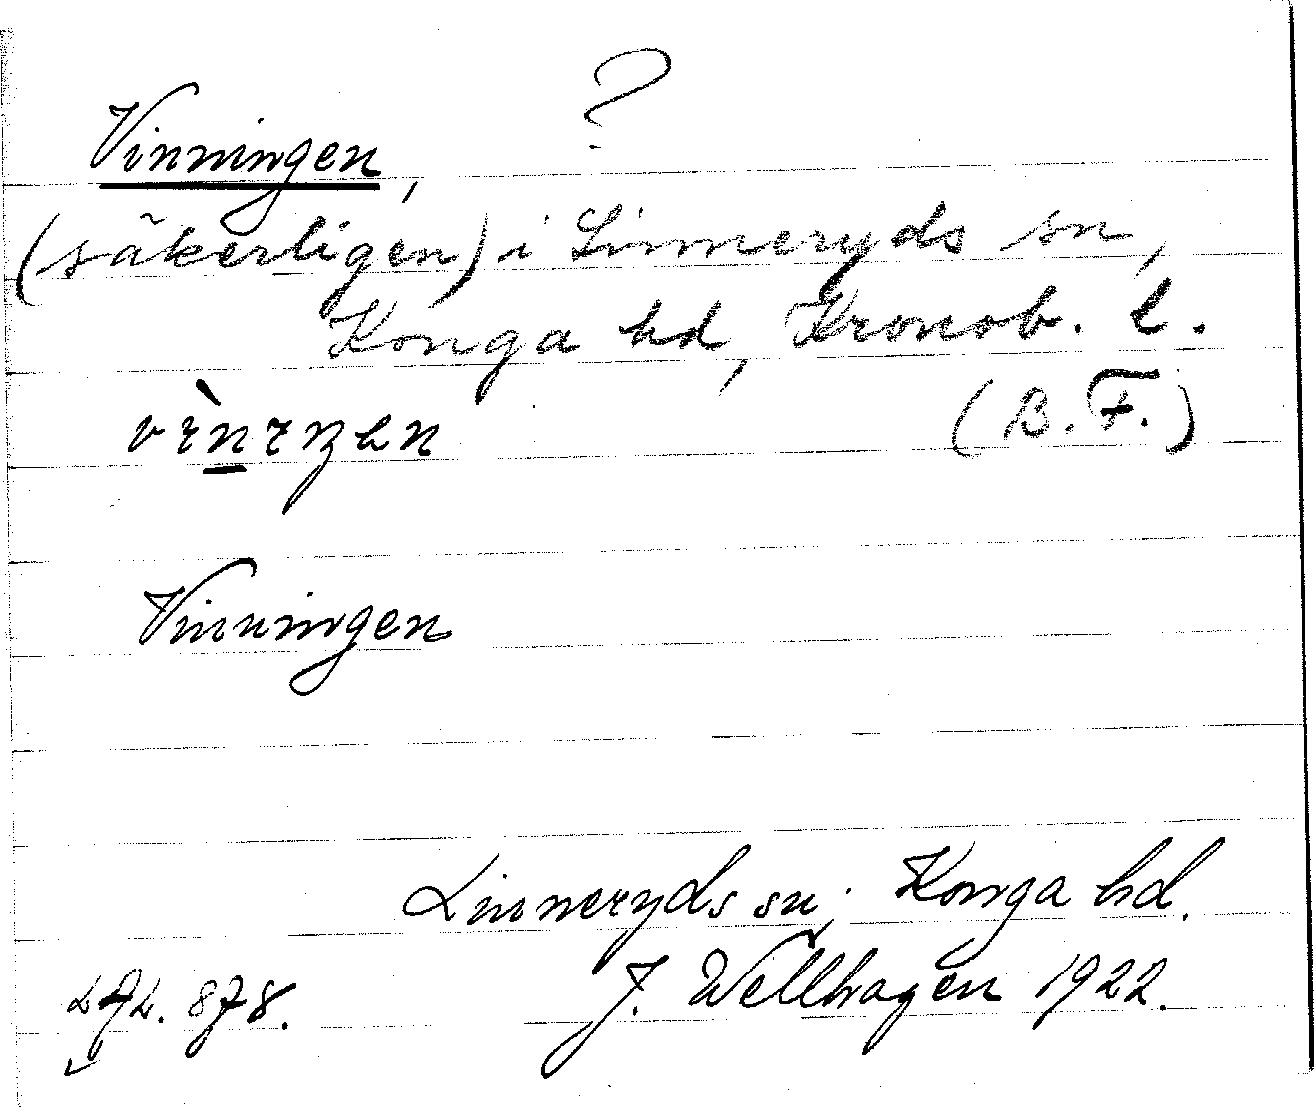 ?
Vinningen,
(säkerligen) i Linneryds sn,
Konga hd, Kronob. l.
(B. F.)
Vinningen
Linneryds sn; Konga hd.
J. Wellhagen 1922.
878.